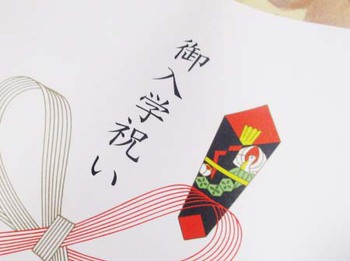 御入学祝い